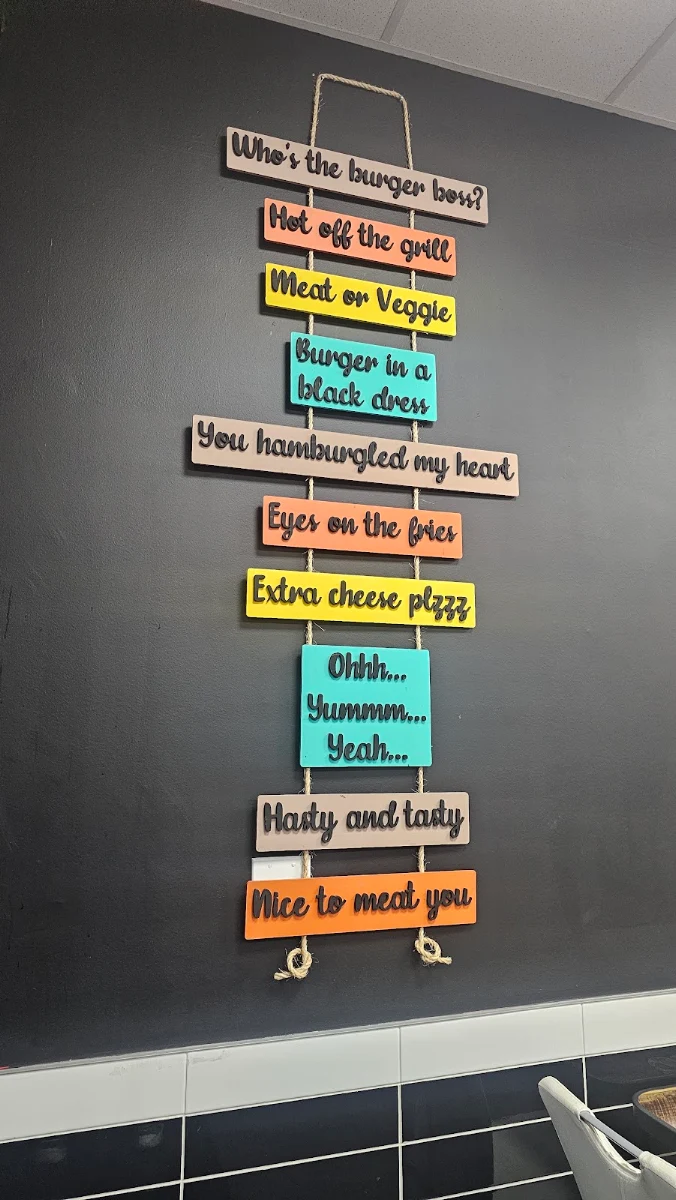 Who's the burger boss?
Hot off the grill
Meat or Veggie
Burger in a
black dress
You hamburgled my heart
Eyes on the fries
Extra cheese plzzz
Ohhh...
Yummm...
Yeah...
Hasty and tasty
Nice to meat you